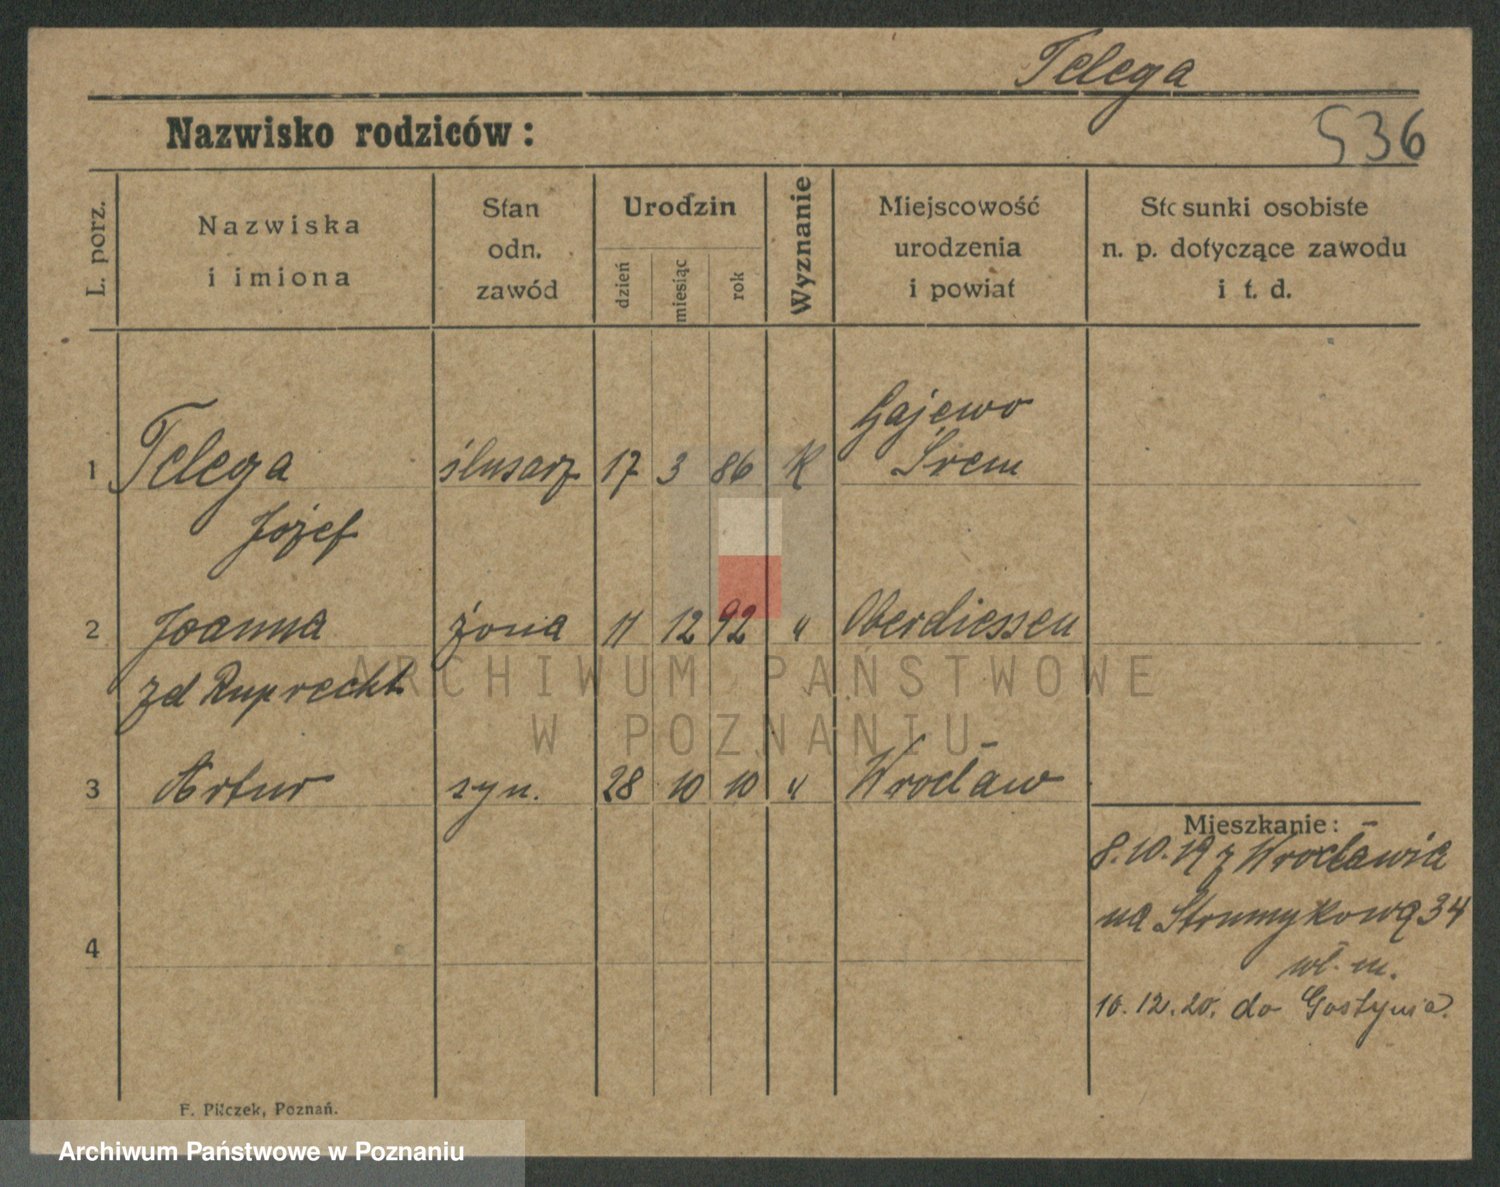 Telega
Nazwisko rodziców:
536
L. porz.
Nazwiska
i imiona
Stan
odn.
zawód
Urodzin
dzień
miesiąc
rok
Wyznanie
Miejscowość
urodzenia
i powiat
Stosunki osobiste
n. p. dotyczące zawodu
i t. d.
Gajewo
1 Telega ślusarz 17 3 86 K Śrem
Józef
2 Joanna żona 11 12 92 " Oberdiessen
zd Ruprecht
ARCHIWUM PAŃSTWOWE
W POZNANIU
3 Artur syn. 28 10 10 " Wrocław
Mieszkanie:
8.10.19 z Wrocławia
na Strumykową 34
wł. m.
4
10.12.20. do Gostynia.
F. Pilczek, Poznań.
Archiwum Państwowe w Poznaniu